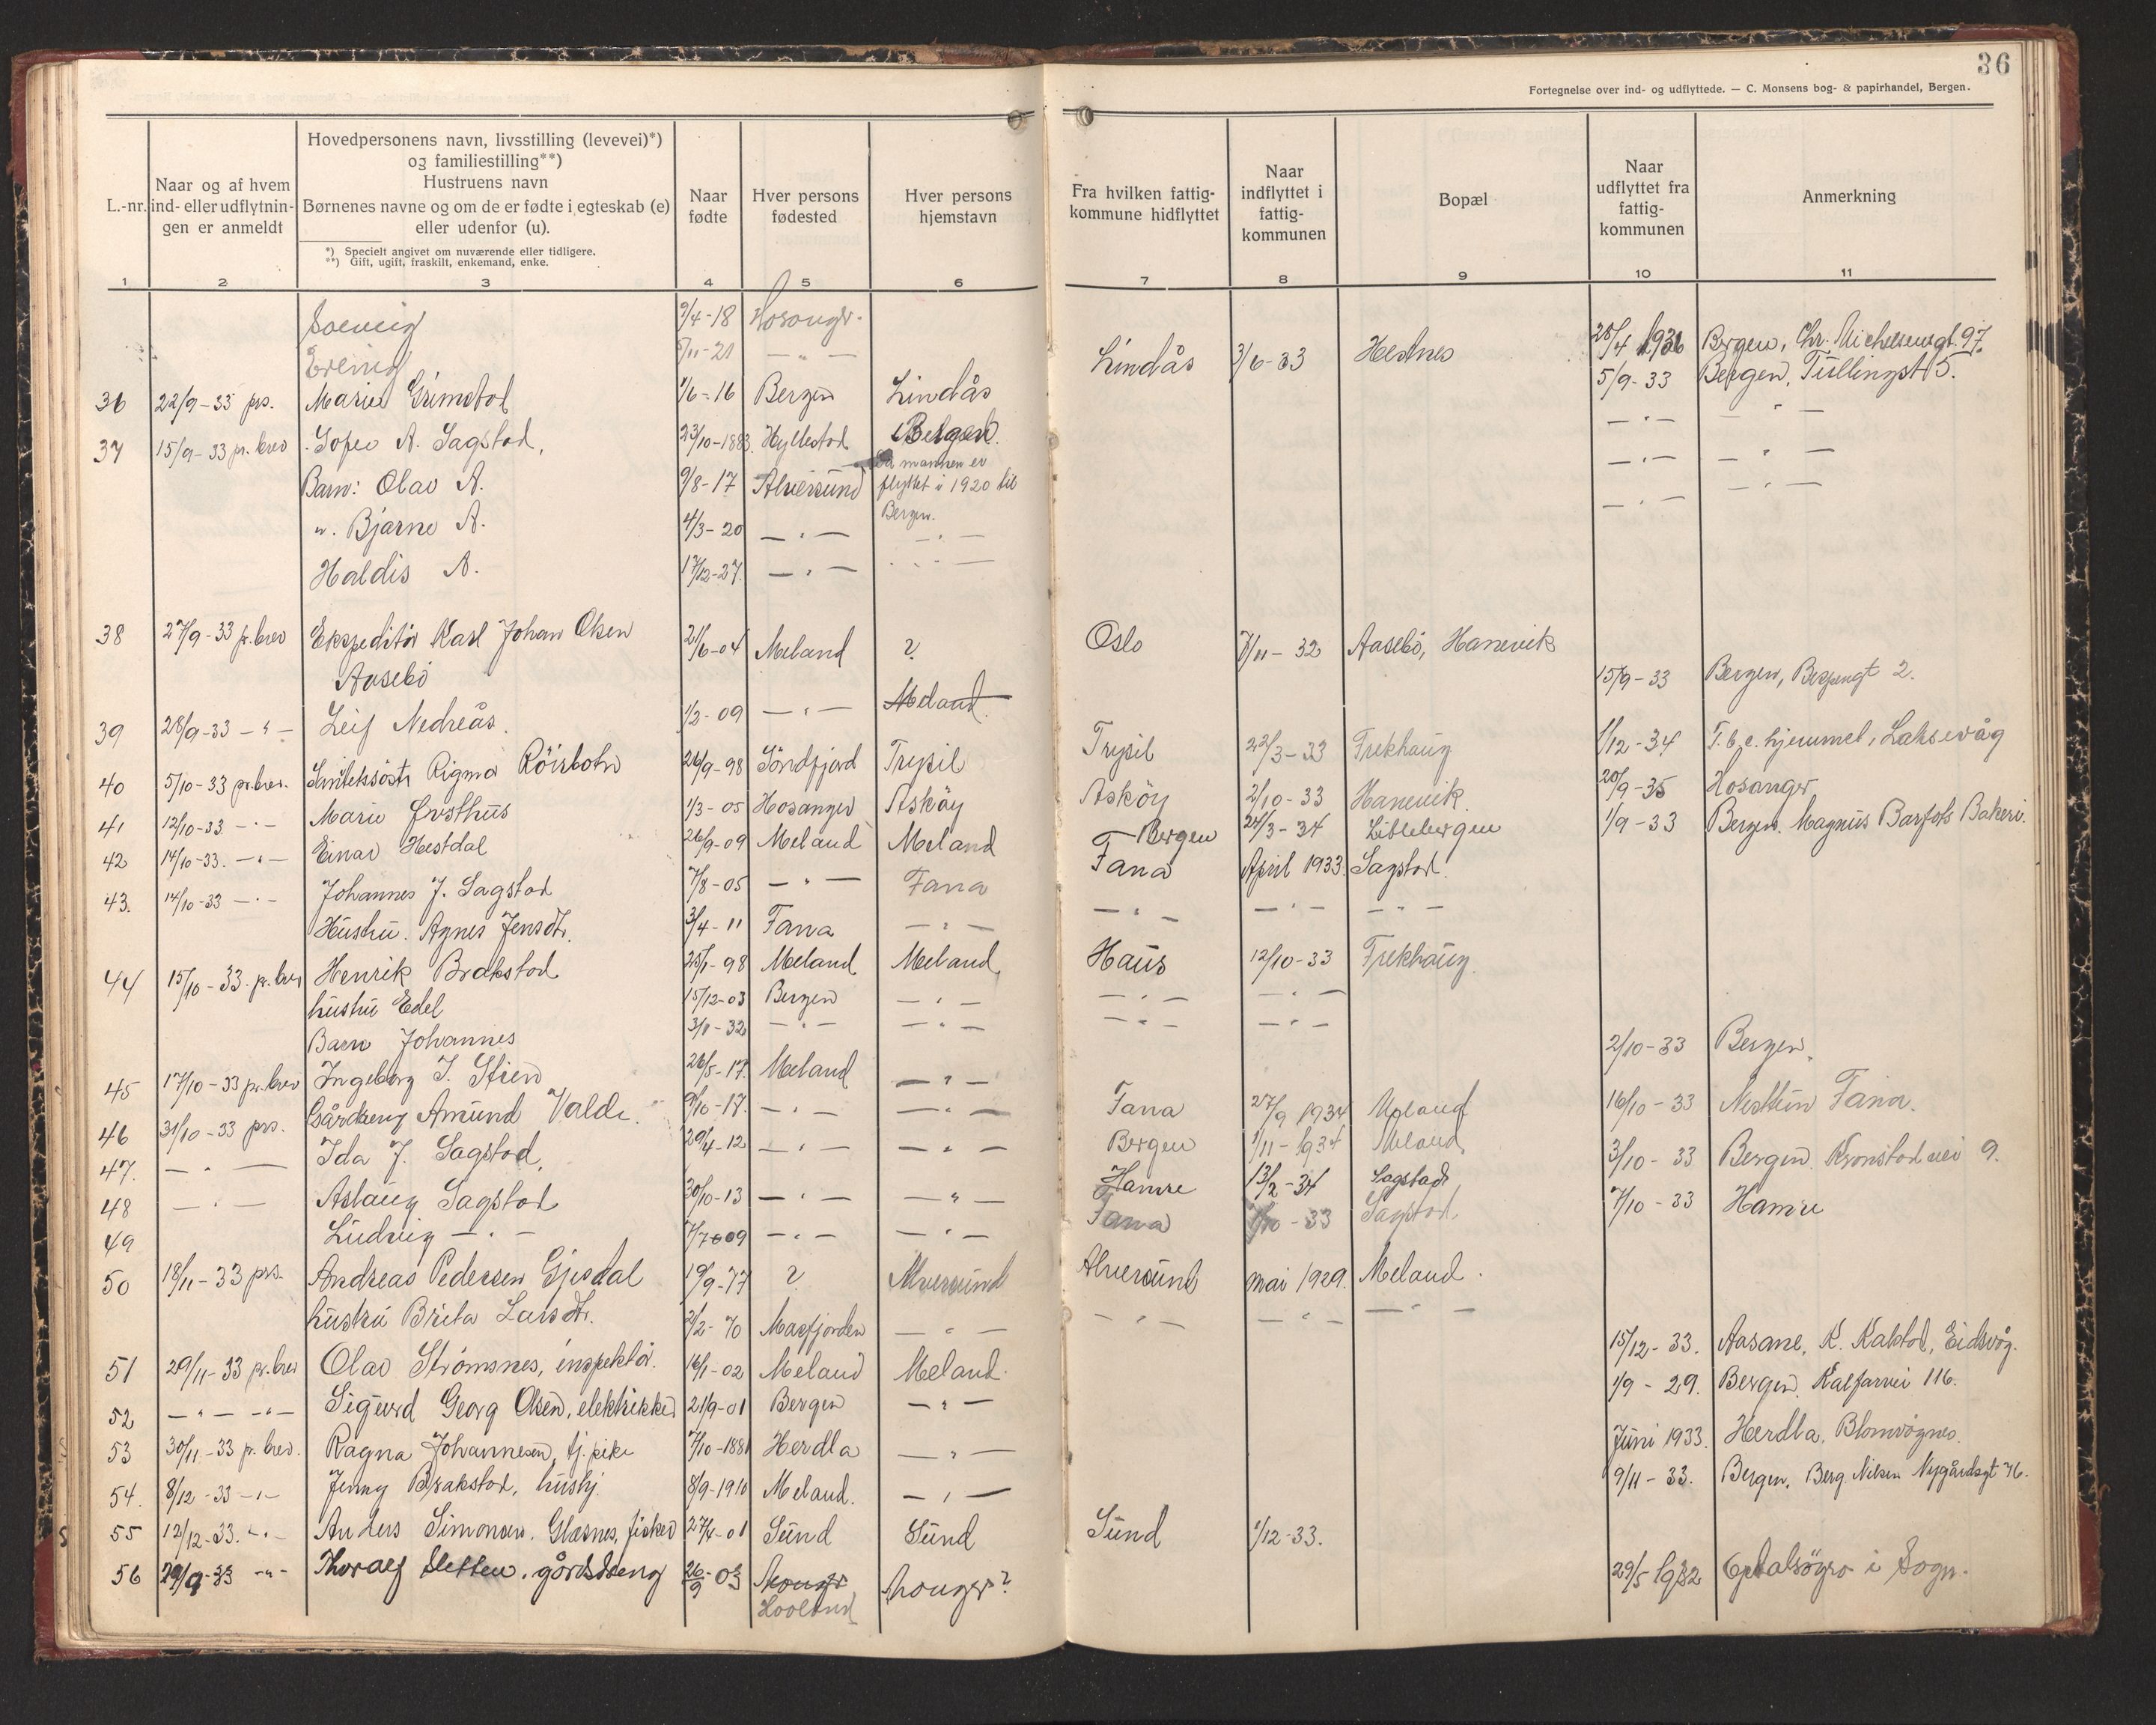 36
Fortegnelse over ind- og udflyttede. — C. Monsens bog- & papirhandel, Bergen.
L.-nr.
Naar og af hvem ind- eller udflytnin-gen er anmeldt
Hovedpersonens navn, livsstilling (levevei)*) og familiestilling**)
Hustruens navn
Børnenes navne og om de er fødte i egteskab (e) eller udenfor (u).
*) Specielt angivet om nuværende eller tidligere.
**) Gift, ugift, fraskilt, enkemand, enke.
Naar fødte
Hver persons fødested
Hver persons hjemstavn
Fra hvilken fattig-kommune hidflyttet
Naar indflyttet i fattig-kommunen
Bopæl
Naar udflyttet fra fattig-kommunen
Anmerkning
1 2 3 4 5 6 7 8 9 10 11
Solveig 9/4-18 Hosanger
Erling 5/11-21 — " —
36 22/9-33 prs. Marie Grimstol 1/6-16 Bergen Lindås Lindås 3/6-33 28/4 1936 Bergen, Chr. Michelsensgt. 97.
37 15/9-33 pr. brev Sofie A. Sagstad, 23/10-1883. Hyllestad Bergen. 5/9-33 Bergen, Tullingst 5.
da mannen er flyttet i 1920 til Bergen.
Barn: Olav A. 9/8-17 Alversund — " — — " —
". Bjarne A. 4/3-20 — " — — " — — " — — " —
Haldis A. 17/12-27. — " — — " — — " — — " —
38 27/9-33 pr. brev Ekspeditør Karl Johan Olsen Aasebö 21/6-04 Meland ? Oslo 7/11-32 Aasebö, Hanevik
39 28/9-33 — " — Leif Nedreås. 1/2-09 — " — Meland. 15/9-33 Bergen, 2.
40 5/10-33 pr. brev. Rigmor Röisbotn 26/9-98 Söndfjord Trysil Trysil 22/3-33 Frekhaug 1/12-34 T.b.c. hjemmet, Laksevåg
41 12/10-33 — " — Marie 1/3-05 Hosanger Asköy Asköy 2/10-33 Hanevik. 20/9-35 Hosanger
42 14/10-33. — " — Einar Hestdal 26/9-09 Meland Meland Bergen 24/3-34 Littlebergen 1/9-33 Bergen. Magnus Barfots Bakeri.
43. 14/10-33 — " — Johannes J. Sagstad 7/8-05 — " — Fana Fana April 1933. Sagstad.
Hustru. Agnes Jensdtr. 3/4-11 Fana — " — — " — — " — — " —
44 15/10-33. pr. brev Henrik Brakstad 25/1-98 Meland Meland, Haus 12/10-33 Frekhaug.
hustru Edel 15/12-03 Bergen — " — — " — — " —
Barn Johannes 3/8-32 — " — — " — — " — — " —
45 17/10-33 pr. brev Ingeborg J. Stien 26/5-17. Meland — " — 2/10-33 Bergen.
46 31/10-33 prs. Gårdreng Amund Valde. 9/10-17. — " — — " — Fana 27/9 1934 Meland 16/10-33 Nesttun Fana.
47. — " — Ida J. Sagstad, 29/4-12 — " — — " — Bergen 1/11-1934 Meland, 3/10-33 Bergen. Kronstadvei 9.
48 — " — Aslaug Sagstad 30/10-13 — " — — " — Hamre 13/2-34 Sagstad 7/10-33 Hamre
49 Ludvig — " — 7/7-09 — " — — " — Fana 1/10-33 Sagstad.
50 18/11-33 prs. Andreas Pedersen Gjesdal 19/9-77 ? Alversund Alversund mai 1929. Meland.
hustru Brita Larsdtr. 2/2-70 Masfjorden — " — — " — — " — — " —
51 29/11-33 pr. brev Olav Strömsnes, inspektör. 16/1-02 Meland Meland. 15/12-33. Aasane, K. Kalstad, Eidsvåg.
52 — " — — " — Sigurd Georg Olsen, elektrikker 21/9-01 Bergen — " — 1/9-29. Bergen. Kalfarvei 116.
53 30/11-33 pr. brev. Ragna Johannesen, tj.pike 7/10-1881 Herdla — " — Juni 1933. Herdla, Blomvågnes.
54. 8/12-33 — " — Jenny Brakstad, hushj. 8/9-1910 Meland. — " — 9/11-33. Bergen, Berg. Nilsen Nygårdsgt 76.
55 12/12-33. — " — Anders Simonsen. Glæsnes, fisker 27/4-01 Sund Sund Sund 1/12-33.
56 29/9-33 — " — Thoralf Sletten, gårdsdreng 26/9-03 Hooland ? 29/5 1932 i Sogn.